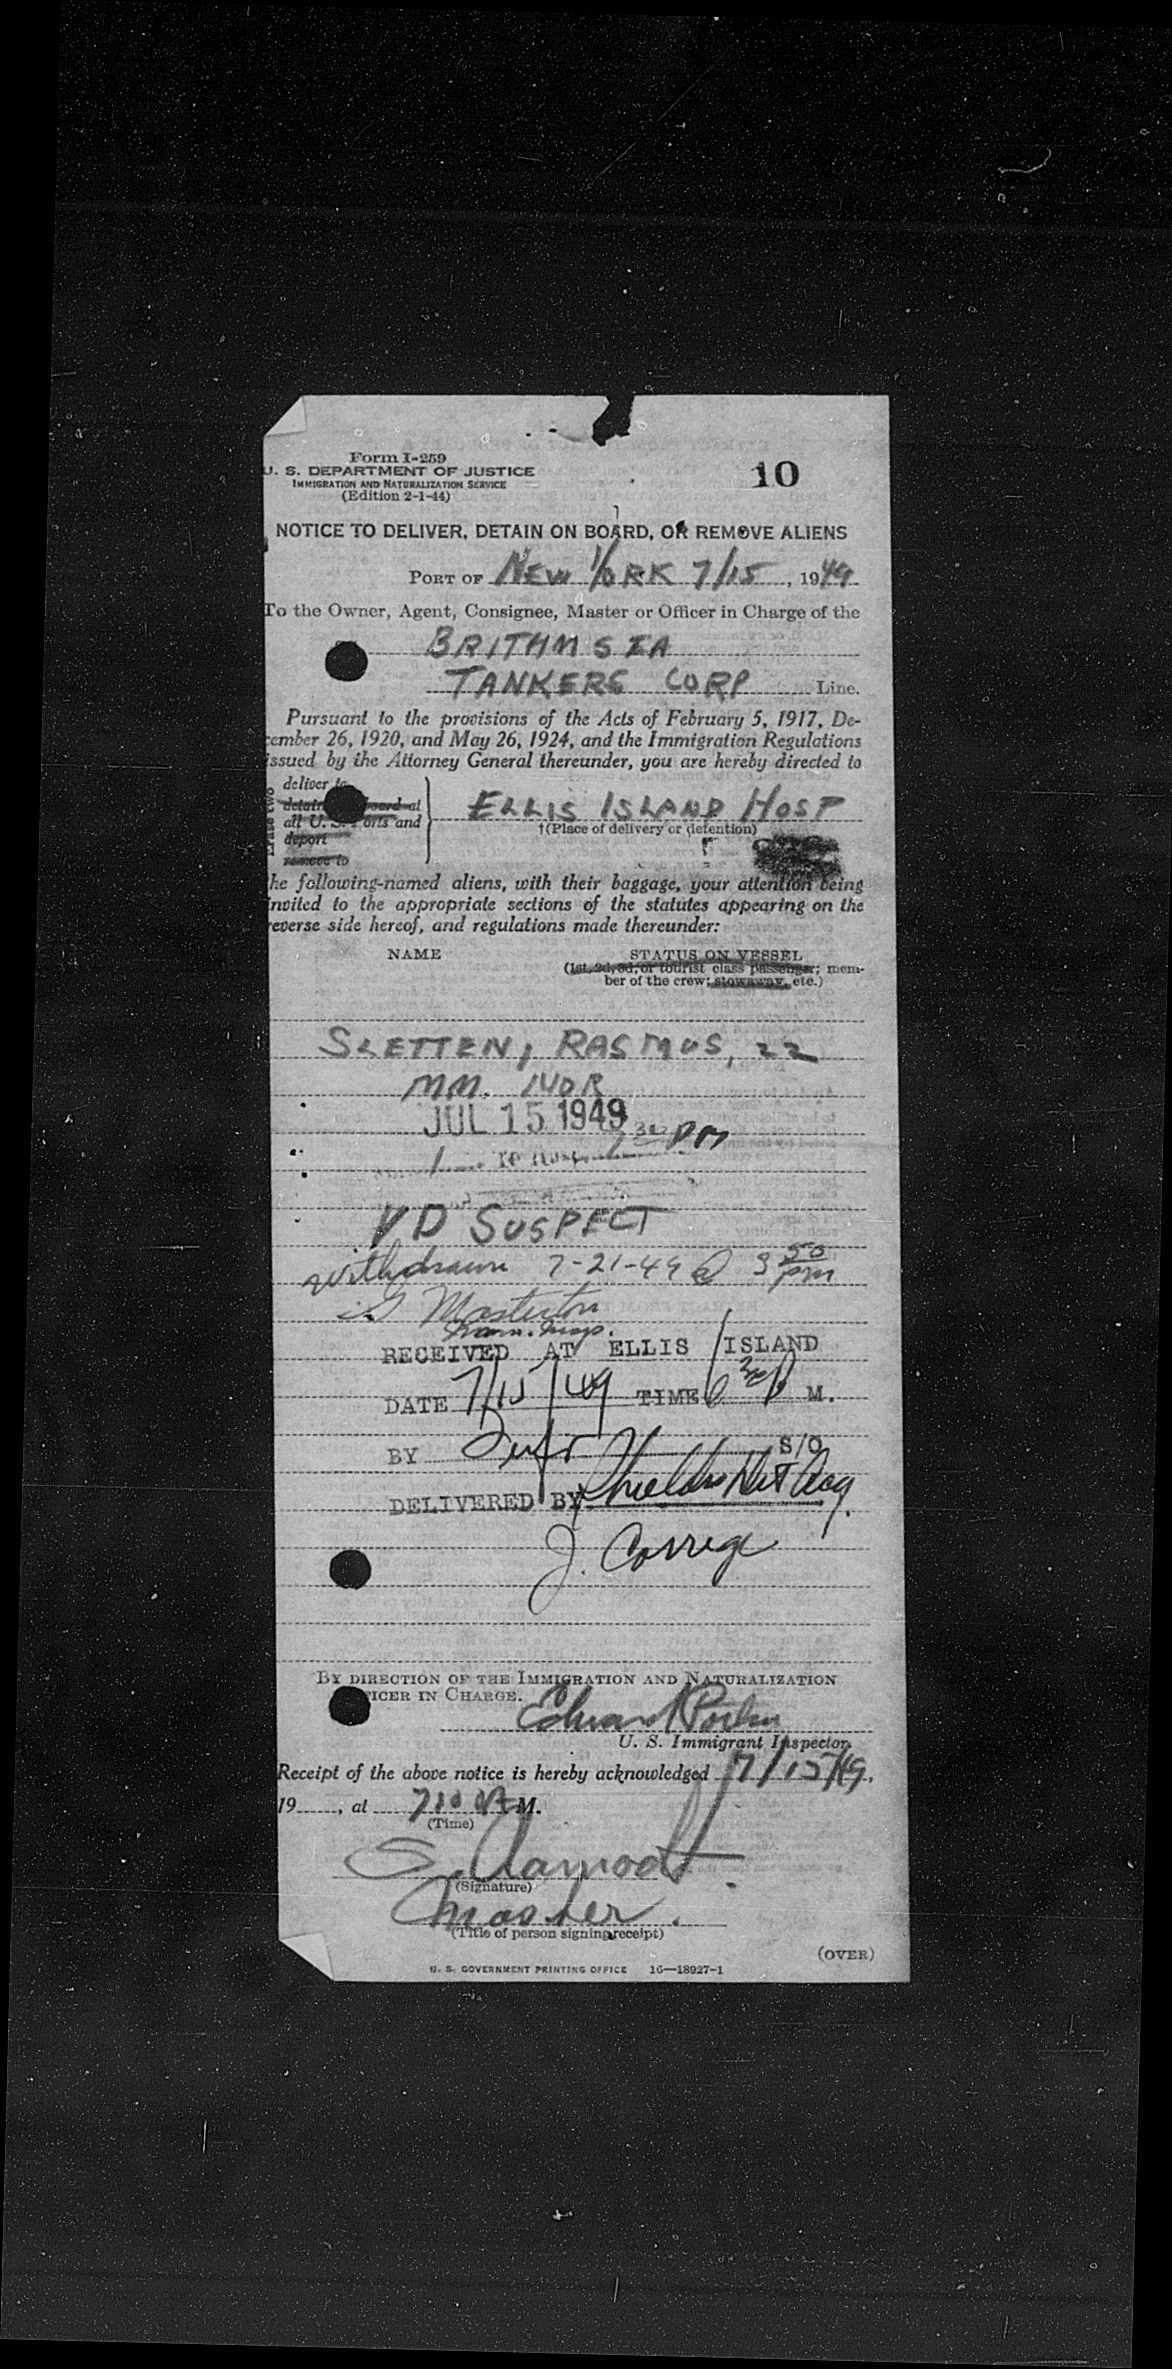 Form I-259
U. S. DEPARTMENT OF JUSTICE
IMMIGRATION AND NATURALIZATION SERVICE
(Edition 2-1-44)
10
NOTICE TO DELIVER, DETAIN ON BOARD, OR REMOVE ALIENS
PORT OF NEW YORK 7/15, 1949
To the Owner, Agent, Consignee, Master or Officer in Charge of the
TANKERS CORP Line.
Pursuant to the provisions of the Acts of February 5, 1917, De-
cember 26, 1920, and May 26, 1924, and the Immigration Regulations
issued by the Attorney General thereunder, you are hereby directed to
deliver to
detain board at
all U. S. Ports and
deport
remove to
ELLIS ISLAND HOSP
†(Place of delivery or detention)
he following-named aliens, with their baggage, your attention being
invited to the appropriate sections of the statutes appearing on the
reverse side hereof, and regulations made thereunder:
NAME STATUS ON VESSEL
(1st, 2d, 3d, or tourist class passenger; mem-
ber of the crew; stowaway, etc.)
SLETTEN, RASMUS, 22
MM. NOR
JUL 15 1949
PM
VD SUSPECT
withdrawn 7-21-49 @ 3 50 pm
Masterton
RECEIVED AT ELLIS ISLAND
DATE 7/15/49 TIME 6 30 P M.
BY S/O
DELIVERED BY Shields Det Acy.
J.
BY DIRECTION OF THE IMMIGRATION AND NATURALIZATION
OFFICER IN CHARGE.
Edward
U. S. Immigrant Inspector.
Receipt of the above notice is hereby acknowledged 7/15/49,
19......, at M.
(Time)
(Signature)
Master.
(Title of person signing receipt)
(OVER)
U. S. GOVERNMENT PRINTING OFFICE 16—18927-1